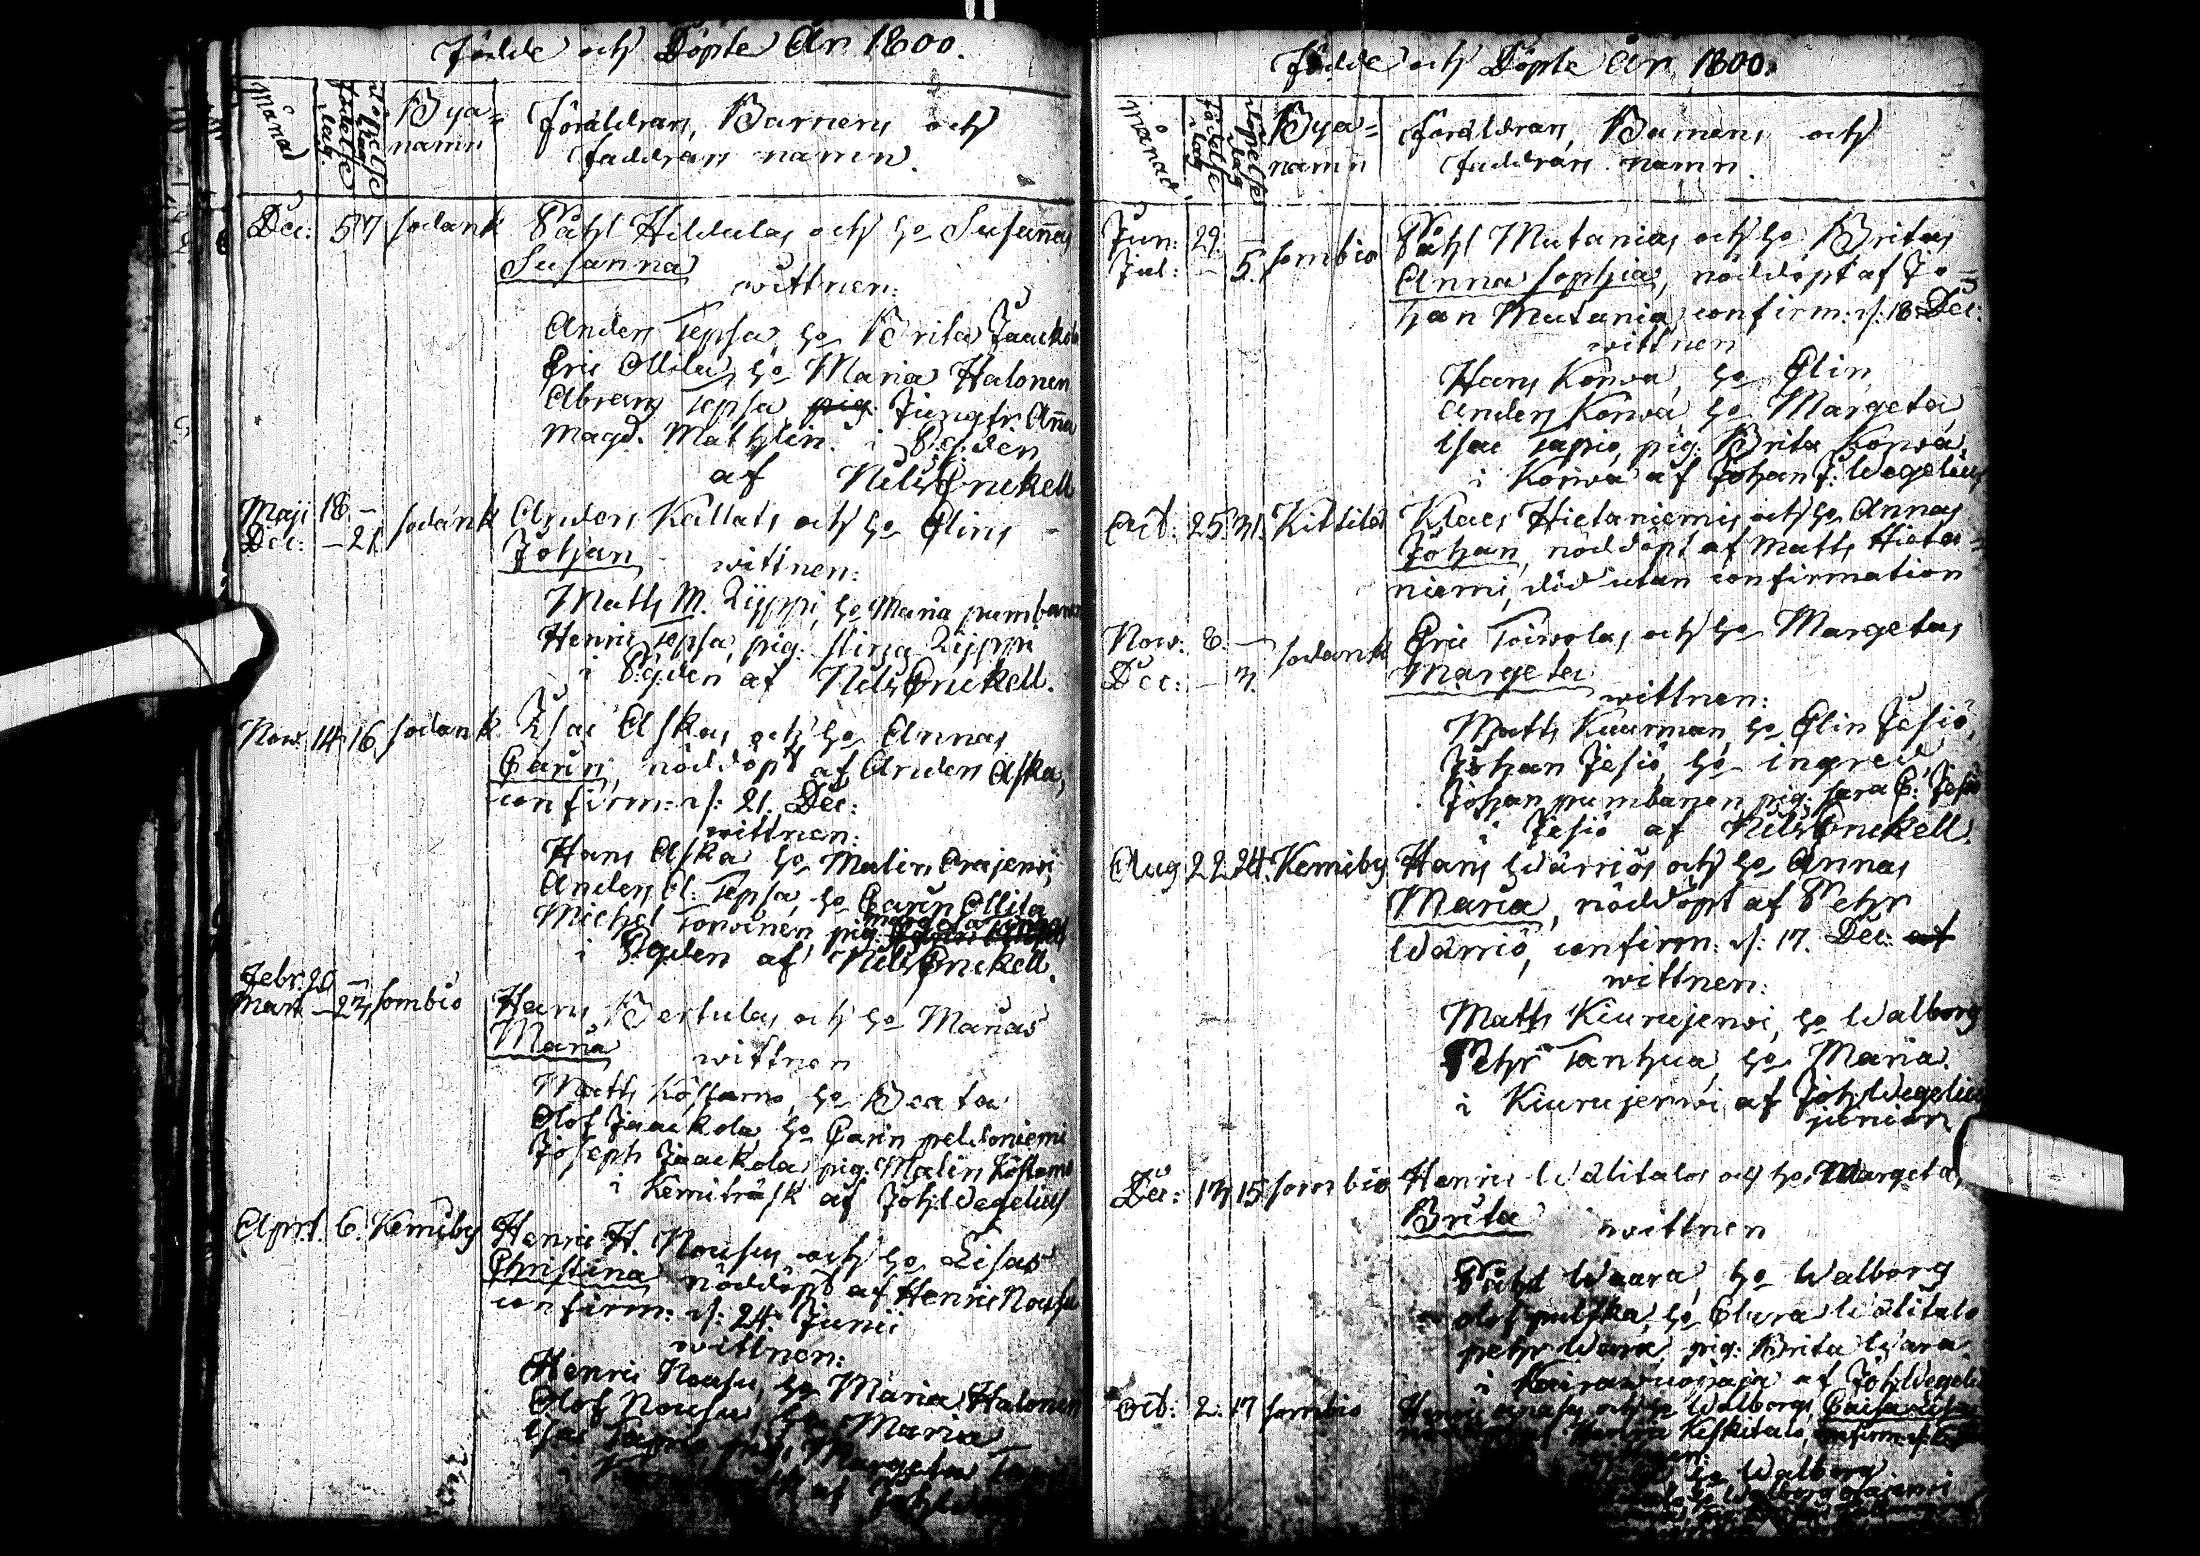 Födde och Döpte År 1800.
Månad
Födelse dag
Döpelse dag
Bya=
namn
Föräldrars, Barnens och
Faddrars namn.
Dec: 5 7 Sodank Påhl Hiltulas och ho Susannas
Susanna
wittnen:
Anders Tepsa, ho Brita Jaackola
Eric Ollila, ho Maria Halonen
Abram Tepsa, pig. Jungfr. Anna
Magd. Mathlin. i P.g:den
af Nils Enckell
Maji 18. –
Dec: – 21. Sodank Anders Kallats och ho Elins
Johan wittnen:
Matts M. Zippi, ho Maria pumbanen
Henric Tepsa, pig. Stina Zippi
i P.g:den af Nils Enckell.
Now. 14 16 Sodank. Isac Askas och ho Annas
Carin, nöddöpt af Anders Aska,
confirm: d: 21. Dec:
wittnen:
Hans Aska ho Malin Orajerwi,
Anders A. Tepsa, ho Carin Ollila
Michel Torvinen pig.
i P.g:den af Nils Enckell.
Febr. 20 –
Mart – 23, Sombio Hans Pertulas och ho Marias
Maria wittnen
Matts Köstamo, ho Beata
Olof Jaackola, ho Carin peldoniemi
Joseph Jaackola, pig. Malin Köstamo
i Kemiträsk af Joh. Wegelius
Aprt. 6. Kemiby Henric H. Nousus och ho Lisas
Christina nöddöpt af Henric Nousu
confirm: d: 24. Junii
wittnen:
Henric Nousu, ho Maria Halonen
Olof Nousu, ho Maria
Isac Tapio, pig. Margeta
af Joh.
Födde och Döpte År 1800.
Månad.
Födelse dag
Döpelse dag
Bya=
namn
Föräldrars, Barnens och
Faddrars namn.
Jun: 29. –
Jul: – 5. Sombio Påhl Mutanias och ho Britas
Anna Sophia, nöddöpt af Jo-
han Mutania, confirm: d: 18 Dec:
wittnen
Hans Korwa, ho Elin
Anders Korwa ho Margeta
Isac Tapio, pig. Brita Korwa
i Korwa af Johan J: Wegelius
Oct: 25. 31. Kittilä Klaes Hietaniemis och ho Annas
Johan, nöddöpt af Matts Hieta-
niemi, död utan confirmation
Now: 8. –
Dec: – 3. Sodank Eric Toiwolas och ho Margetas
Margeta
wittnen:
Matts Kuurman, ho Elin Jesiö,
Johan Jesiö, ho ingred
Johan pumbanen pig: Sara C: Jesiö
i Jesiö af Nils Enckell.
Aug 22. 24. Kemiby Hans Wärriös och ho Annas
Maria, nöddöpt af Pehr
Wärriö, confirm: d: 17. Dec: af
wittnen:
Matts Kiurujerwi, ho Walborg
Pehr Tanhua, ho Maria.
i Kiurujerwi af Joh Wegelius
junior
Dec: 13, 15 Sombio Henric Wälitalos och ho Margeta,
Brita wittnen
Påhl Waara, ho Walborg
Olof pulska, ho Clara Wälitalo
pehr Wara, pig: Brita Wara
i af Joh. Wegelius
Oct: 2. 17 Sombio Henric och ho Walborgs Caisa Lisa
Keskitalo, confirm:
wittnen:
ho Walborg
ho Walborg